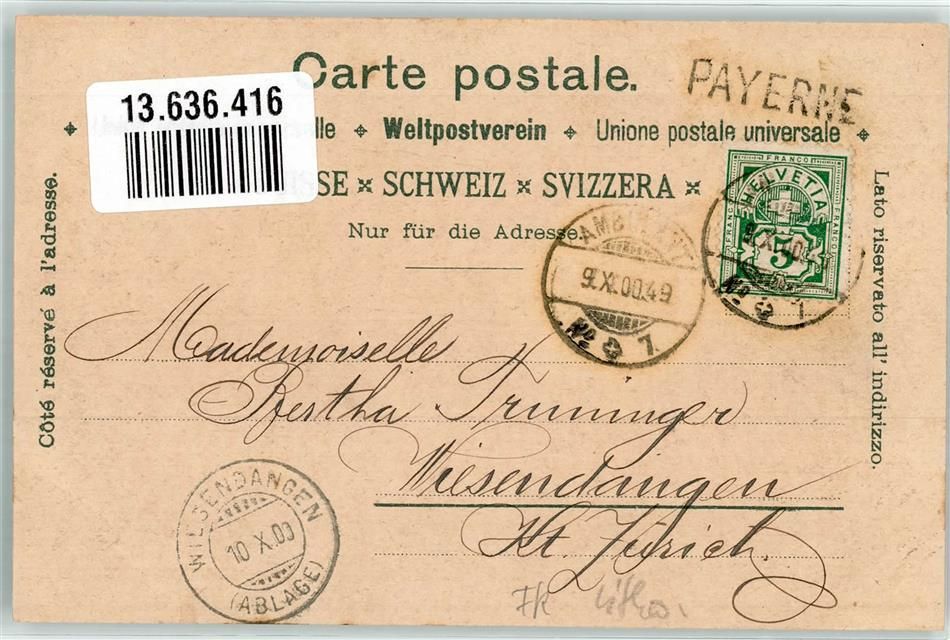 Carte postale.
PAYERNE
13.636.416
lle ⌖ Weltpostverein ⌖ Unione postale universale
SSE ¤ SCHWEIZ ¤ SVIZZERA ¤
Nur für die Adresse.
Côté réservé à l'adresse.
Lato riservato all' indirizzo.
FRANCO
HELVETIA
FRANCO
FRANCO
5
No 1
AMBULANT
9.XI.00.49
No 1
Mademoiselle
Bertha Truninger
Wiesendangen
Kt. Zürich.
WIESENDANGEN
10 X.00
(ABLAGE)
FK Litho.